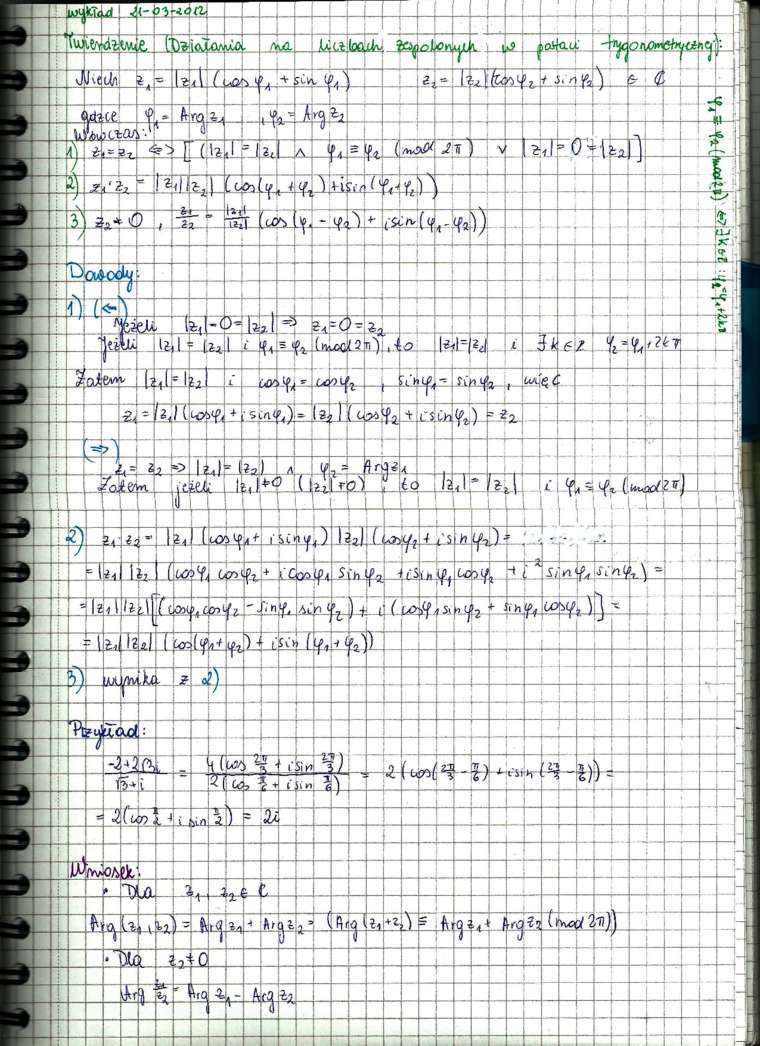 wykład 21-03-2012
Twierdzenie (Działania na liczbach zespolonych w postaci trygonometrycznej):
Niech z₁ = |z₁| (cosφ₁ + sinφ₁) z₂ = |z₂| (cosφ₂ + sinφ₂) ∈ ℂ
gdzce φ₁ = Arg z₁ , φ₂ = Arg z₂
Wówczas:
1) z₁ = z₂ ⇔ [ (|z₁| = |z₂| ∧ φ₁ ≡ φ₂ (mod 2π) ∨ |z₁| = 0 = |z₂| ]
2) z₁·z₂ = |z₁||z₂| (cos(φ₁ + φ₂) + isin(φ₁+φ₂))
3) z₂ ≠ 0 , z₁/z₂ = |z₁|/|z₂| (cos(φ₁ - φ₂) + isin(φ₁-φ₂))
φ₁ ≡ φ₂ (mod 2π) ⇔ ∃ k∈ℤ : φ₂=φ₁+2kπ
Dowody:
1) (⇐)
Jeżeli |z₁| = 0 = |z₂| ⇒ z₁ = 0 = z₂
Jeżeli |z₁| = |z₂| i φ₁ ≡ φ₂ (mod 2π), to |z₁|=|z₂| i ∃ k ∈ ℤ φ₂ = φ₁ + 2kπ
Zatem |z₁| = |z₂| i cosφ₁ = cosφ₂ , sinφ₁ = sinφ₂ , więc
z₁ = |z₁| (cosφ₁ + isinφ₁) = |z₂| (cosφ₂ + isinφ₂) = z₂
(⇒)
z₁ = z₂ ⇒ |z₁| = |z₂| ∧ φ₂ = Arg z₁
Zatem jeżeli |z₁| ≠ 0 (|z₂| ≠ 0) , to |z₁| = |z₂| i φ₁ ≡ φ₂ (mod 2π)
2) z₁·z₂ = |z₁| (cosφ₁ + isinφ₁) |z₂| (cosφ₂ + isinφ₂) =
= |z₁||z₂| (cosφ₁ cosφ₂ + icosφ₁ sinφ₂ + isinφ₁ cosφ₂ + i² sinφ₁ sinφ₂) =
= |z₁||z₂| [(cosφ₁ cosφ₂ - sinφ₁ sinφ₂) + i (cosφ₁ sinφ₂ + sinφ₁ cosφ₂)] =
= |z₁||z₂| (cos(φ₁+φ₂) + isin (φ₁+φ₂))
3) wynika z 2)
Przykład:
(-2+2√3i)/(√3+i) = 4(cos 2π/3 + isin 2π/3)/2(cos π/6 + isin π/6) = 2 (cos(2π/3 - π/6) + isin (2π/3 - π/6)) =
= 2(cos π/2 + i sin π/2) = 2i
Wniosek:
• Dla z₁, z₂ ∈ ℂ
Arg (z₁,z₂) = Arg z₁ + Arg z₂ = (Arg (z₁+z₂) ≡ Arg z₁ + Arg z₂ (mod 2π))
• Dla z₂ ≠ 0
Arg z₁/z₂ = Arg z₁ - Arg z₂